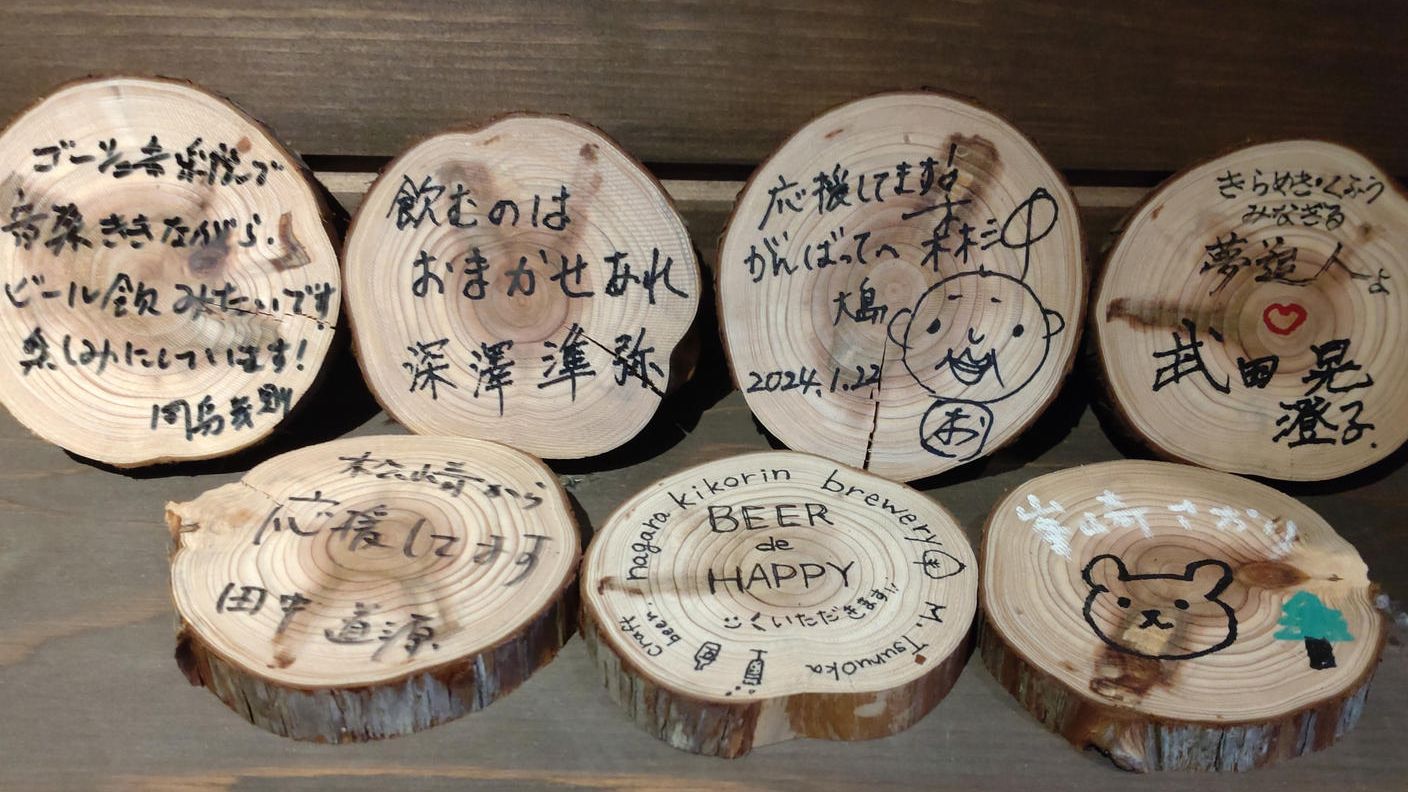 音楽ききながら、
ビール飲みたいです
楽しみにしています!
飲むのは
おまかせあれ
深澤準弥
応援してます!
がんばってへ
大島
2024.1.22
お
きらめき・くふう
みなぎる
夢追人よ
武田晃
澄子.
松崎から
応援してます
田中道源
nagara kikorin brewery
BEER
de
HAPPY
いただきます!!
craft beer.
M. Tsuruoka
さおり